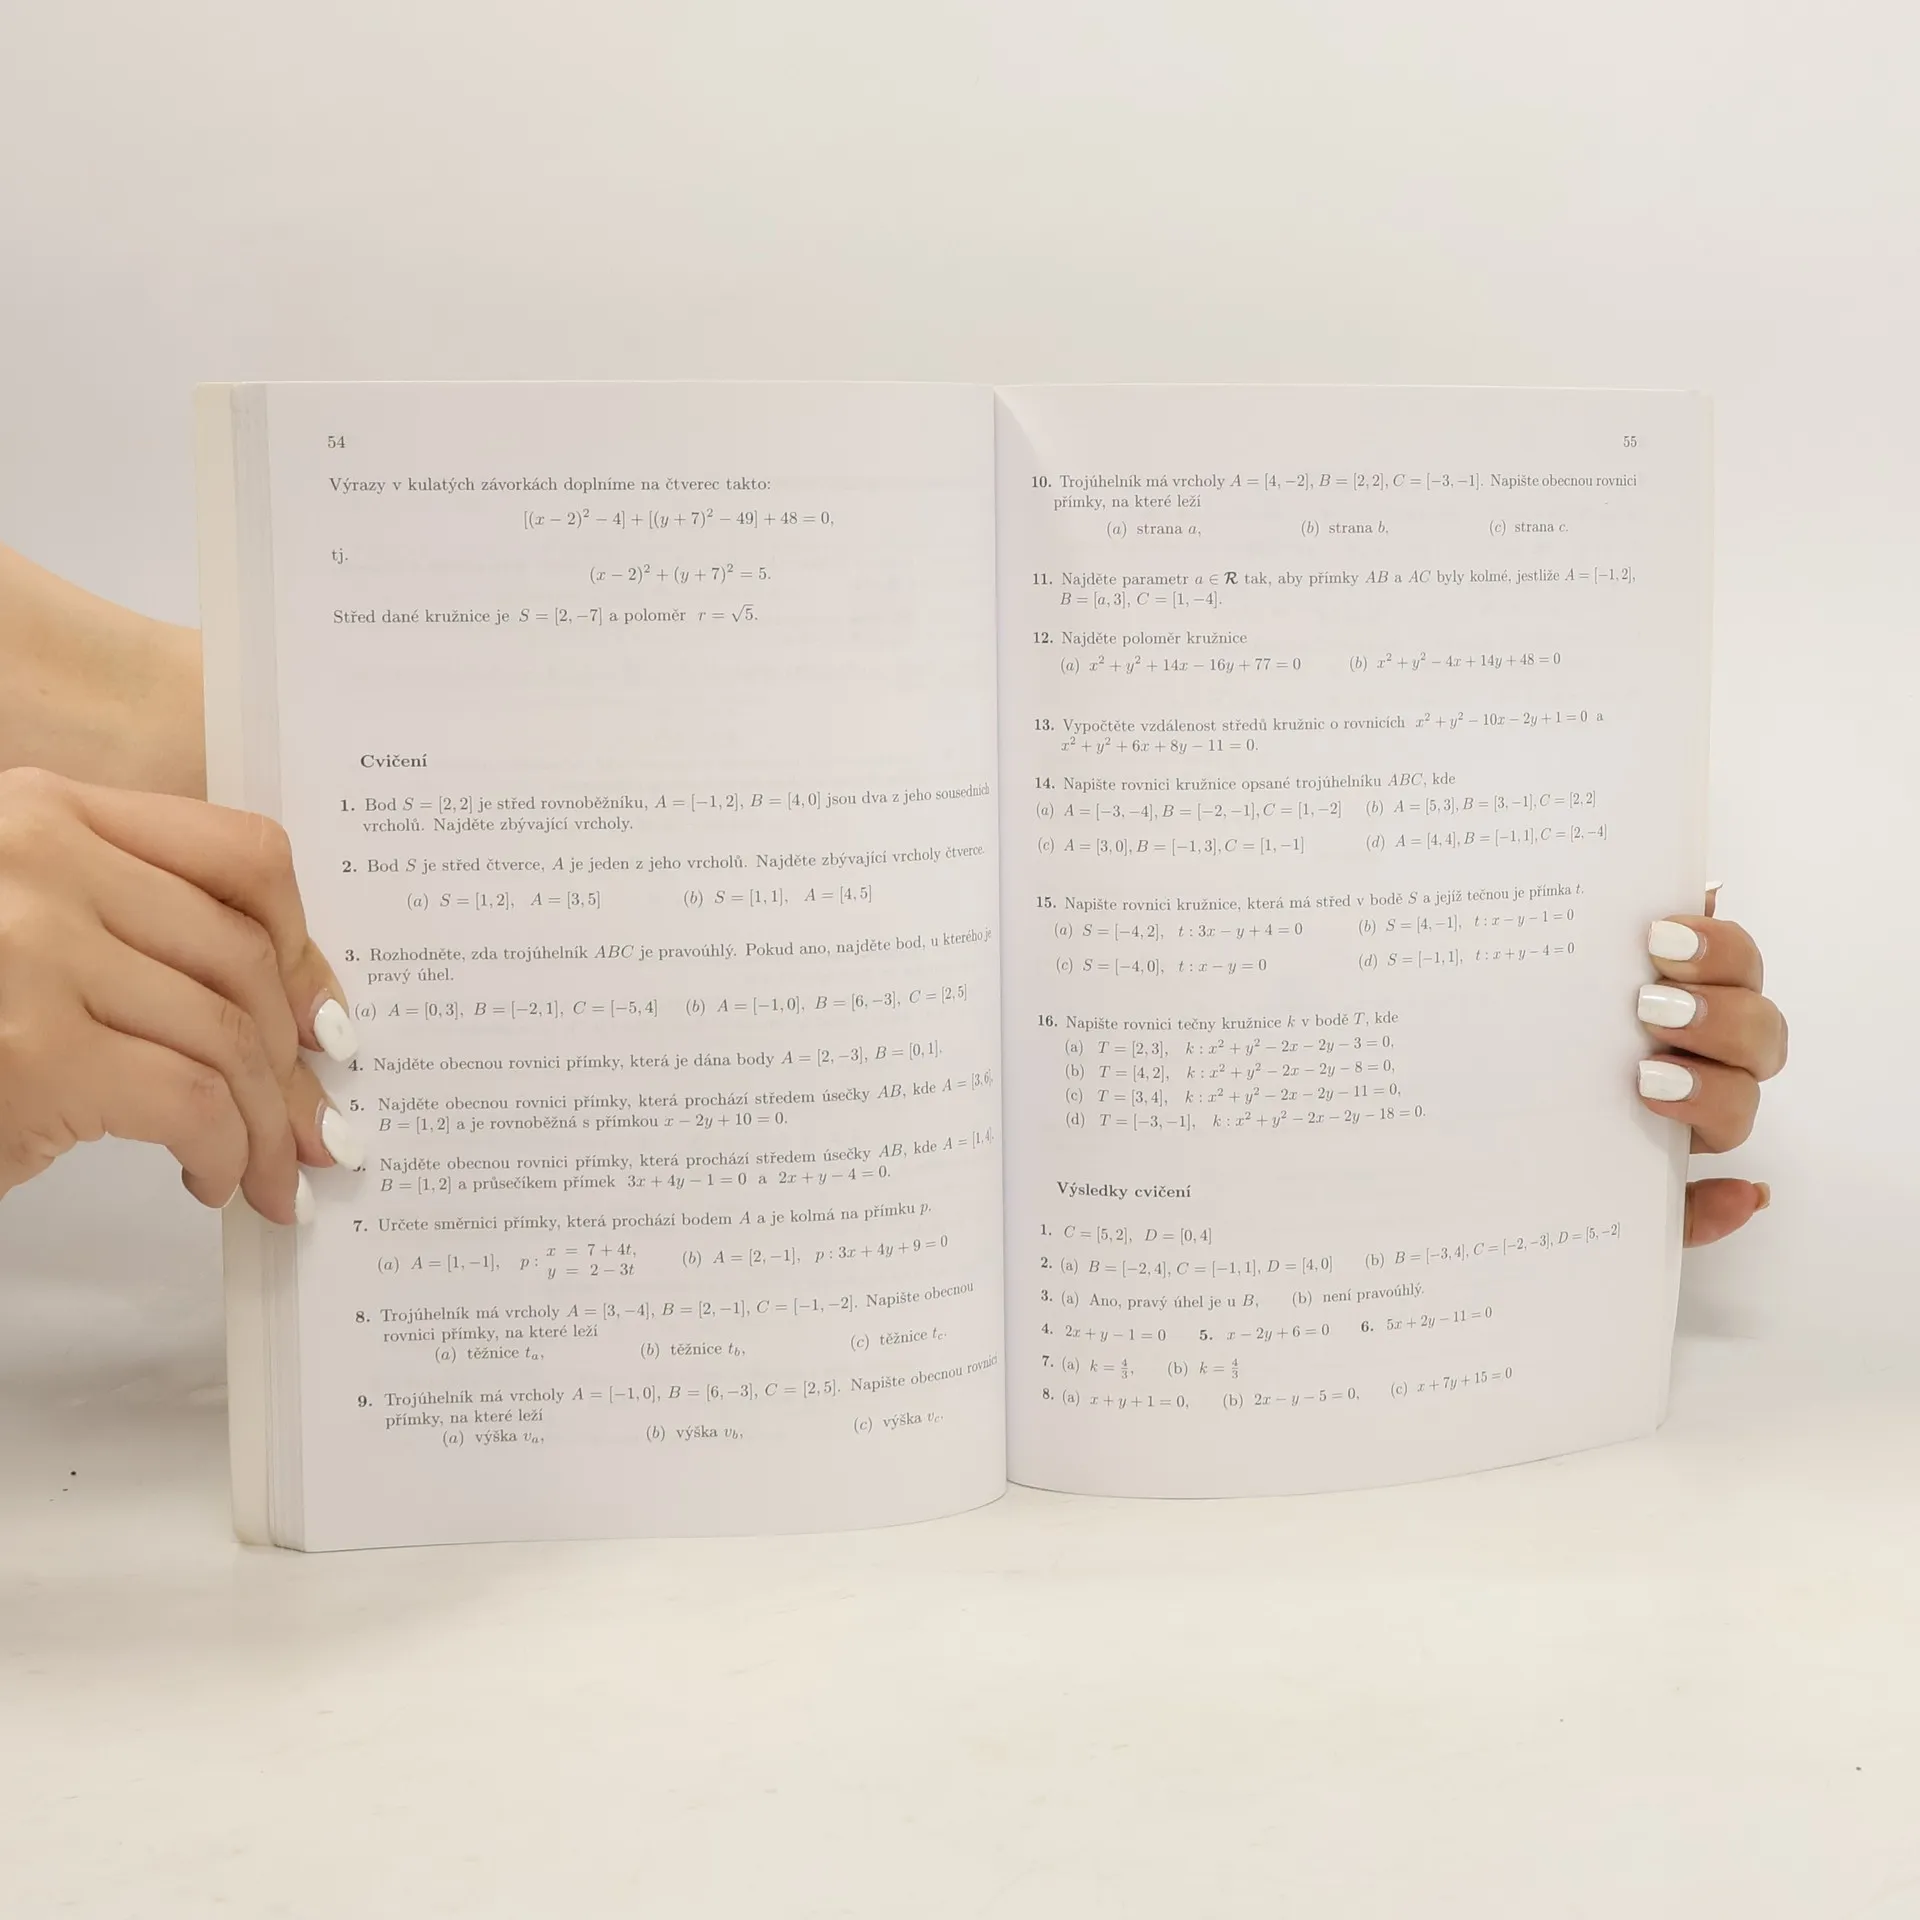 54
Výrazy v kulatých závorkách doplníme na čtverec takto:
[(x − 2)² − 4] + [(y + 7)² − 49] + 48 = 0,
tj.
(x − 2)² + (y + 7)² = 5.
Střed dané kružnice je S = [2, −7] a poloměr r = √5.
Cvičení
1. Bod S = [2, 2] je střed rovnoběžníku, A = [−1, 2], B = [4, 0] jsou dva z jeho sousedních
vrcholů. Najděte zbývající vrcholy.
2. Bod S je střed čtverce, A je jeden z jeho vrcholů. Najděte zbývající vrcholy čtverce.
(a) S = [1, 2], A = [3, 5] (b) S = [1, 1], A = [4, 5]
3. Rozhodněte, zda trojúhelník ABC je pravoúhlý. Pokud ano, najděte bod, u kterého je
pravý úhel.
(a) A = [0, 3], B = [−2, 1], C = [−5, 4] (b) A = [−1, 0], B = [6, −3], C = [2, 5]
4. Najděte obecnou rovnici přímky, která je dána body A = [2, −3], B = [0, 1].
5. Najděte obecnou rovnici přímky, která prochází středem úsečky AB, kde A = [3, 6],
B = [1, 2] a je rovnoběžná s přímkou x − 2y + 10 = 0.
Najděte obecnou rovnici přímky, která prochází středem úsečky AB, kde A = [1, 4],
B = [1, 2] a průsečíkem přímek 3x + 4y − 1 = 0 a 2x + y − 4 = 0.
7. Určete směrnici přímky, která prochází bodem A a je kolmá na přímku p.
(a) A = [1, −1], p : x = 7 + 4t, y = 2 − 3t (b) A = [2, −1], p : 3x + 4y + 9 = 0
8. Trojúhelník má vrcholy A = [3, −4], B = [2, −1], C = [−1, −2]. Napište obecnou
rovnici přímky, na které leží
(a) těžnice tₐ, (b) těžnice t_b, (c) těžnice t_c.
9. Trojúhelník má vrcholy A = [−1, 0], B = [6, −3], C = [2, 5]. Napište obecnou rovnici
přímky, na které leží
(a) výška vₐ, (b) výška v_b, (c) výška v_c.
55
10. Trojúhelník má vrcholy A = [4, −2], B = [2, 2], C = [−3, −1]. Napište obecnou rovnici
přímky, na které leží
(a) strana a, (b) strana b, (c) strana c.
11. Najděte parametr a ∈ R tak, aby přímky AB a AC byly kolmé, jestliže A = [−1, 2],
B = [a, 3], C = [1, −4].
12. Najděte poloměr kružnice
(a) x² + y² + 14x − 16y + 77 = 0 (b) x² + y² − 4x + 14y + 48 = 0
13. Vypočtěte vzdálenost středů kružnic o rovnicích x² + y² − 10x − 2y + 1 = 0 a
x² + y² + 6x + 8y − 11 = 0.
14. Napište rovnici kružnice opsané trojúhelníku ABC, kde
(a) A = [−3, −4], B = [−2, −1], C = [1, −2] (b) A = [5, 3], B = [3, −1], C = [2, 2]
(c) A = [3, 0], B = [−1, 3], C = [1, −1] (d) A = [4, 4], B = [−1, 1], C = [2, −4]
15. Napište rovnici kružnice, která má střed v bodě S a jejíž tečnou je přímka t.
(a) S = [−4, 2], t : 3x − y + 4 = 0 (b) S = [4, −1], t : x − y − 1 = 0
(c) S = [−4, 0], t : x − y = 0 (d) S = [−1, 1], t : x + y − 4 = 0
16. Napište rovnici tečny kružnice k v bodě T, kde
(a) T = [2, 3], k : x² + y² − 2x − 2y − 3 = 0,
(b) T = [4, 2], k : x² + y² − 2x − 2y − 8 = 0,
(c) T = [3, 4], k : x² + y² − 2x − 2y − 11 = 0,
(d) T = [−3, −1], k : x² + y² − 2x − 2y − 18 = 0.
Výsledky cvičení
1. C = [5, 2], D = [0, 4]
2. (a) B = [−2, 4], C = [−1, 1], D = [4, 0] (b) B = [−3, 4], C = [−2, −3], D = [5, −2]
3. (a) Ano, pravý úhel je u B, (b) není pravoúhlý.
4. 2x + y − 1 = 0 5. x − 2y + 6 = 0 6. 5x + 2y − 11 = 0
7. (a) k = 4/3, (b) k = 4/3
8. (a) x + y + 1 = 0, (b) 2x − y − 5 = 0, (c) x + 7y + 15 = 0